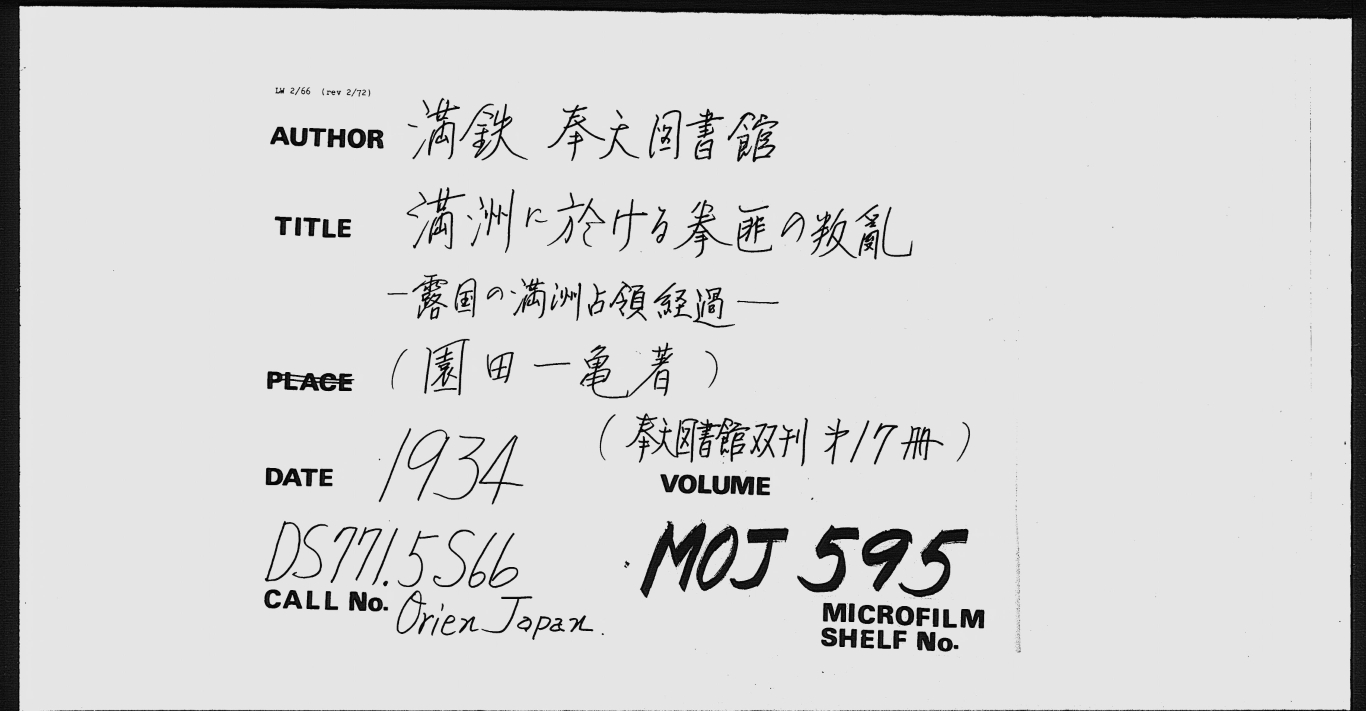 LW 2/66 (rev 2/72)
AUTHOR 満鉄 奉天図書館
TITLE 満洲に於ける拳匪の叛亂
―露国の満洲占領経過―
PLACE (園田一亀著)
(奉天図書館双刊 第17冊)
DATE 1934
VOLUME
DS771.5S66
MOJ 595
CALL No. Orien Japan.
MICROFILM
SHELF No.